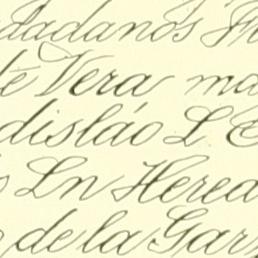 dadanos
te Vera ma
dislao L E
Ln Hered
de la Gar